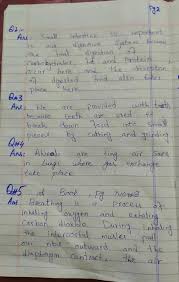 Pg 2
Q2:-
Ans: Small intestine is important
in our digestive system because
the final digestion of
carbohydrates, fat and Protein
occur here and the absorption
of digested food also takes
place here.
Q#3
Ans: We are provided with teeth
because teeth are used to
break down food into small
pieces by cutting and grinding
Q#4
Ans: Alveoli are tiny air sacs
in lungs where gas exchange
take place
Q#5 at Book, Pg
Ans Breathing is a process of
inhaling oxygen and exhaling
carbon dioxide. During inhaling
the intercostal muscles pull
our ribs outward and the
diaphragm contract, the air